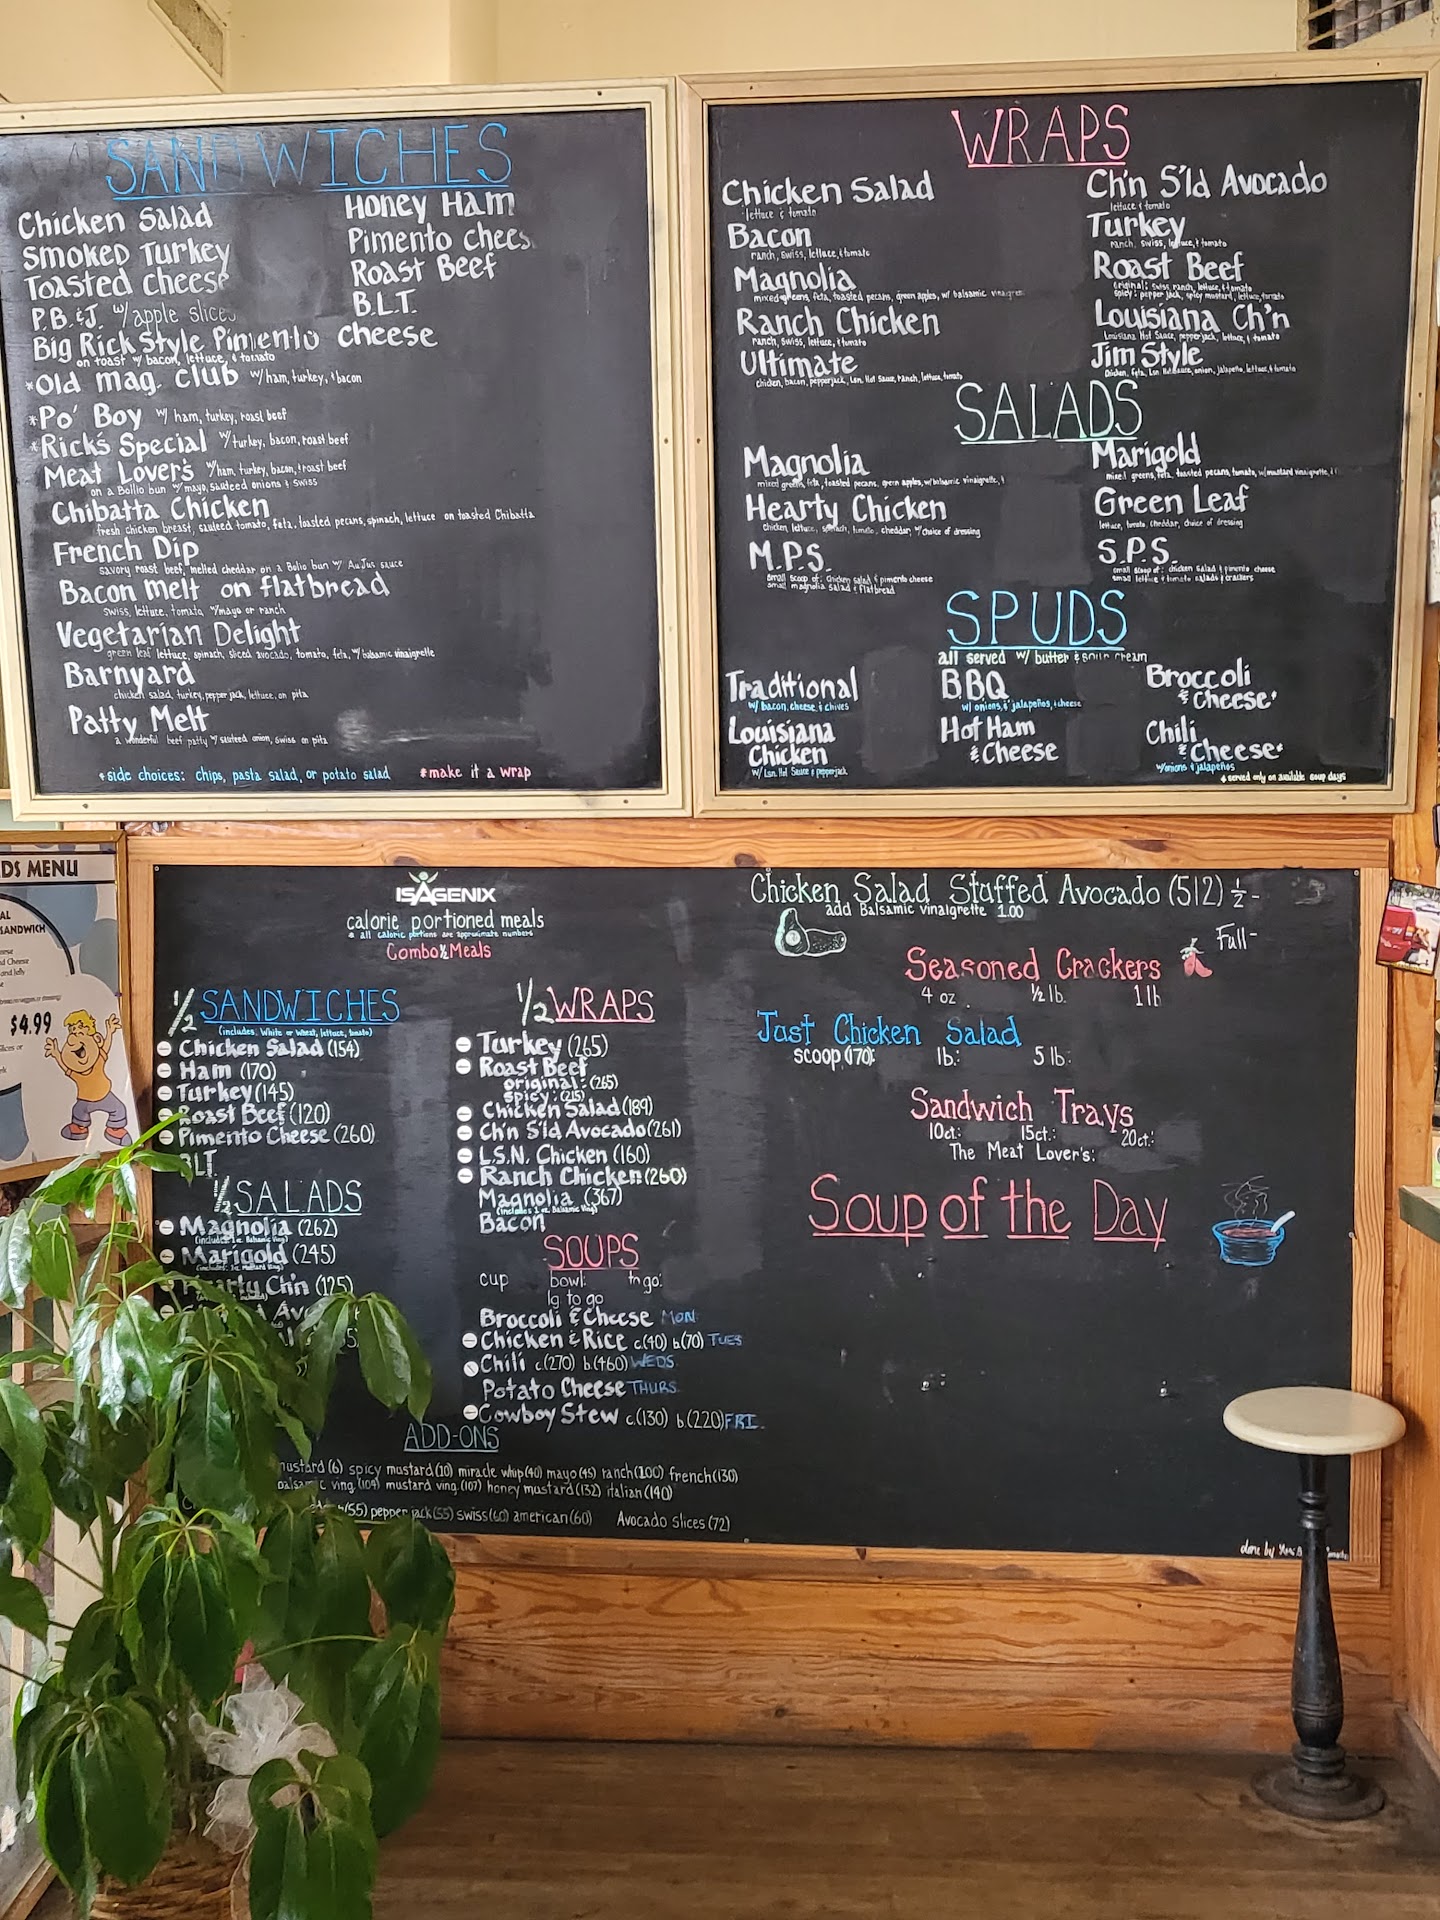 SANDWICHES
Chicken Salad
Smoked Turkey
Toasted Cheese
P.B.&J. w/ apple slices
Honey Ham
Pimento chees
Roast Beef
B.L.T.
Big Rick Style Pimento cheese
on toast w/ bacon, lettuce, & tomato
*Old mag. club w/ ham, turkey, & bacon
*Po' Boy w/ ham, turkey, roast beef
*Rick's Special w/ turkey, bacon, roast beef
Meat Lover's w/ ham, turkey, bacon, & roast beef
on a Bollio bun w/ mayo, sauteed onions & swiss
Chibatta Chicken
fresh chicken breast, sauteed tomato, feta, toasted pecans, spinach, lettuce on toasted Chibatta
French Dip
savory roast beef, melted cheddar on a Bolio bun w/ AuJus sauce
Bacon melt on flatbread
swiss, lettuce, tomato, w/ mayo or ranch
Vegetarian Delight
green leaf lettuce, spinach, sliced avocado, tomato, feta, w/ balsamic vinaigrette
Barnyard
chicken salad, turkey, pepper jack, lettuce, on pita
Patty Melt
a wonderful beef patty w/ sauteed onion, swiss on pita
*side choices: chips, pasta salad, or potato salad
*make it a wrap
WRAPS
Chicken Salad
lettuce & tomato
Bacon
ranch, swiss, lettuce, & tomato
Magnolia
mixed greens, feta, toasted pecans, green apples, w/ balsamic
Ranch Chicken
ranch, swiss, lettuce, & tomato
Ultimate
chicken, bacon, pepperjack, Lsn. Hot Sauce, ranch, lettuce, tomato
Ch'n S'ld Avocado
lettuce & tomato
Turkey
ranch, swiss, lettuce, & tomato
Roast Beef
original: swiss, ranch, lettuce, & tomato
spicy: pepper jack, spicy mustard, lettuce, tomato
Louisiana Ch'n
Louisiana Hot Sauce, pepperjack, lettuce, & tomato
Jim Style
Chicken, feta, Lsn. Hot Sauce, onion, jalapeño, lettuce, & tomato
SALADS
Magnolia
mixed greens, feta, toasted pecans, green apples, w/ balsamic vinaigrette, &
Hearty Chicken
chicken, lettuce, spinach, tomato, cheddar, w/ choice of dressing
M.P.S.
small scoop of: chicken salad & pimento cheese
small magnolia salad & flatbread
Marigold
mixed greens, feta, toasted pecans, tomato, w/ mustard vinaigrette, &
Green Leaf
lettuce, tomato, cheddar, choice of dressing
S.P.S.
small scoop of: chicken salad & pimento cheese
small lettuce & tomato salads & crackers
SPUDS
all served w/ butter & sour cream
Traditional
w/ bacon, cheese, & chives
Louisiana
Chicken
w/ Lsn. Hot Sauce & pepperjack
BBQ
w/ onions, & jalapeños, & cheese
Hot Ham
& Cheese
Broccoli
& Cheese*
Chili
& Cheese*
w/ onions & jalapeños
* served only on available soup days
DS MENU
AL
SANDWICH
and Jelly
$4.99
ISAGENIX
calorie portioned meals
* all caloric portions are approximate numbers
Combo ½ Meals
1/2 SANDWICHES
(includes: White or Wheat, lettuce, tomato)
Chicken Salad (154)
Ham (170)
Turkey (145)
Roast Beef (120)
Pimento Cheese (260)
BLT
1/2 SALADS
Magnolia (262)
Marigold (245)
Hearty Ch'n (125)
1/2 WRAPS
Turkey (265)
Roast Beef
original: (265)
spicy: (215)
Chicken Salad (189)
Ch'n S'ld Avocado (261)
LS.N. Chicken (160)
Ranch Chicken (260)
Magnolia (367)
(includes 1 oz. Balsamic Ving)
Bacon
SOUPS
cup bowl: to go:
lg to go
Broccoli & Cheese MON
Chicken & Rice c.(40) b.(70) TUES
Chili c.(270) b.(460) WEDS
Potato Cheese THURS
Cowboy Stew c.(130) b.(220) FRI.
ADD-ONS
mustard (6) spicy mustard (10) miracle whip (40) mayo (45) ranch (100) french (130)
balsamic ving. (109) mustard ving. (107) honey mustard (132) italian (140)
(55) pepper jack (55) swiss (60) american (60) Avocado slices (72)
Chicken Salad Stuffed Avocado (512) ½ -
add Balsamic vinaigrette 1.00
Full -
Seasoned Crackers
4 oz. ½ lb. 1 lb
Just Chicken Salad
scoop (170): lb.: 5 lb.:
Sandwich Trays
10ct.: 15ct.: 20ct.:
The Meat Lover's:
Soup of the Day
done by